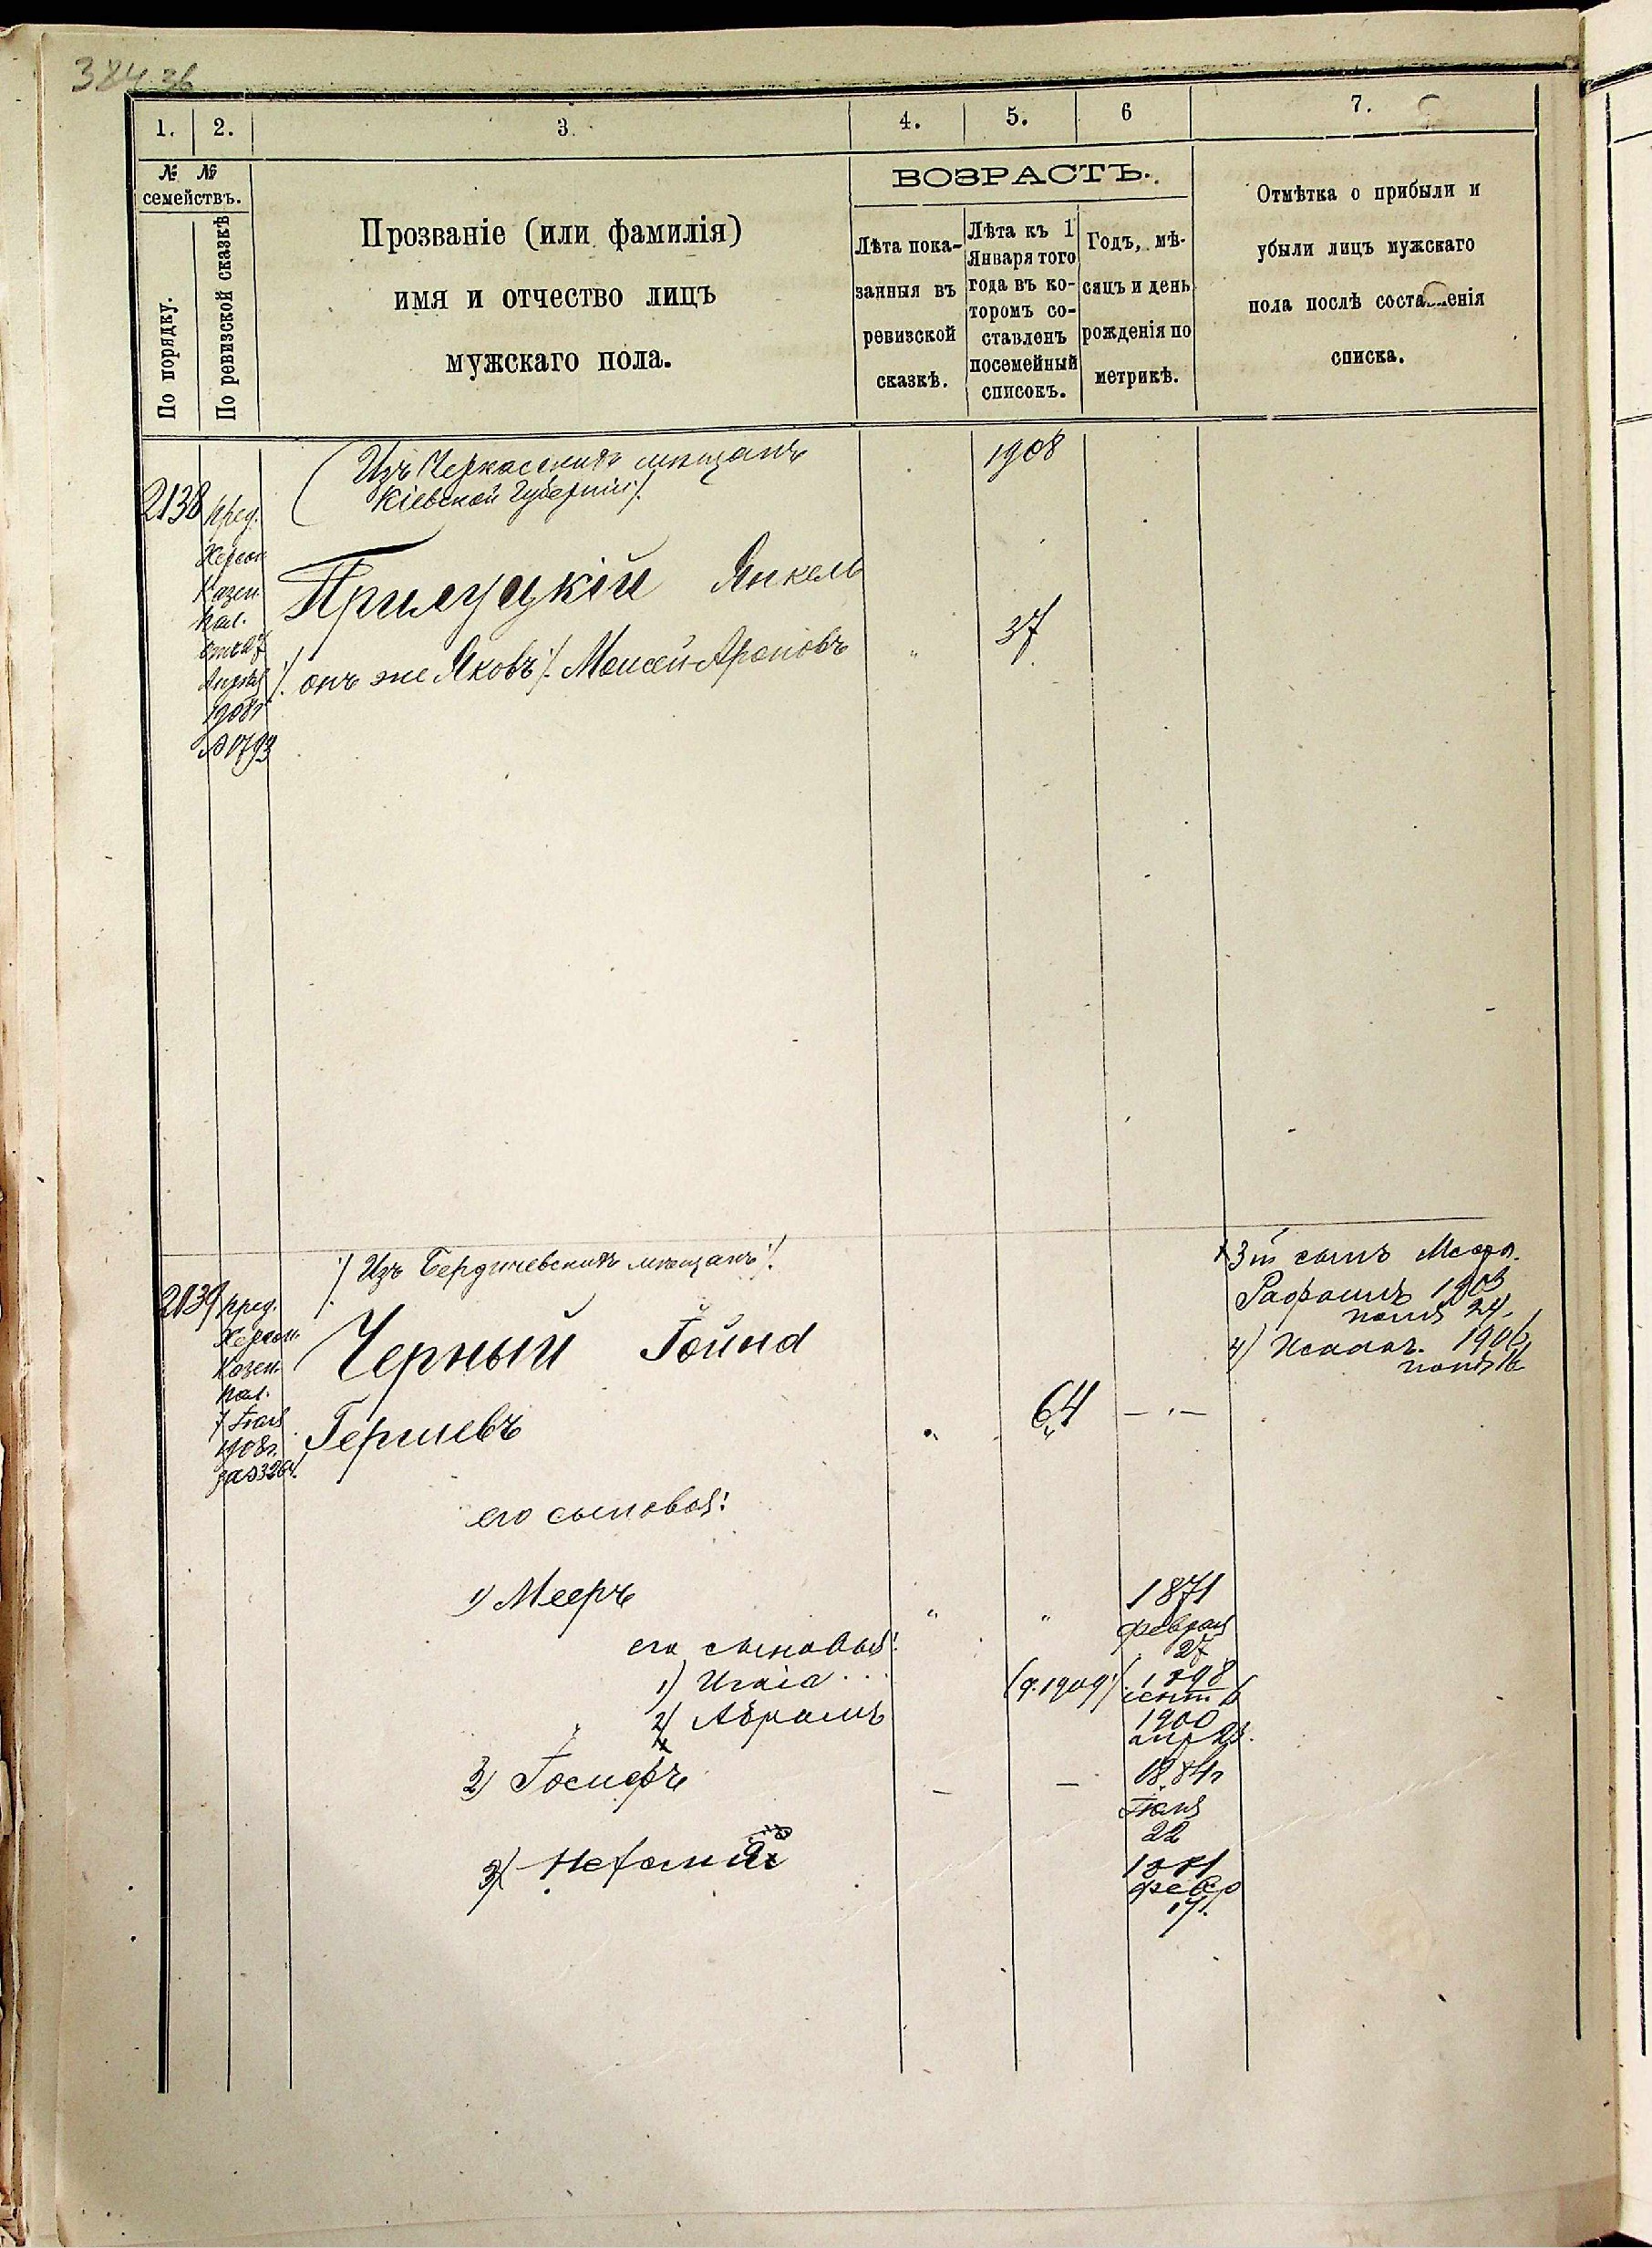 384 36
1. 2. 3. 4. 5. 6 7.
№ №
семействъ.
По порядку.
По ревизской сказкѣ
Прозваніе (или фамилія)
имя и отчество лицъ
мужскаго пола.
ВОЗРАСТЪ.
Лѣта пока-
занныя въ
ревизской
сказкѣ.
Лѣта къ 1
Января того
года въ ко-
торомъ со-
ставленъ
посемейный
списокъ.
Годъ, мѣ-
сяцъ и день
рожденія по
метрикѣ.
Отмѣтка о прибыли и
убыли лицъ мужскаго
пола послѣ составленія
списка.
2138
пред.
Херсон
Казен
Пал.
отъ 7
Апрѣл
1908г
№ 1793
Изъ Черкасскихъ мѣщанъ
Кіевской Губерніи
1908
Прилуцкій Янкель
онъ же Яковъ Моисей-Ароновъ
37
2139
пред.
Херсон.
Казен.
Пал.
7
1908г.
за № 3264
Изъ Бердичевскихъ мѣщанъ
Черный Іойна
Гершевъ
64
его сыновья:
1) Мееръ
1871
февраля
27
его сыновья:
1) Исаія
(р. 1909)
1898
сент 6
2) Абрамъ
1900
апр 23.
2) Іосифъ
1884г
22
3)
1881
февр
17.
3й сынъ Меера
1903
24.
4) Исаакъ. 1906
16